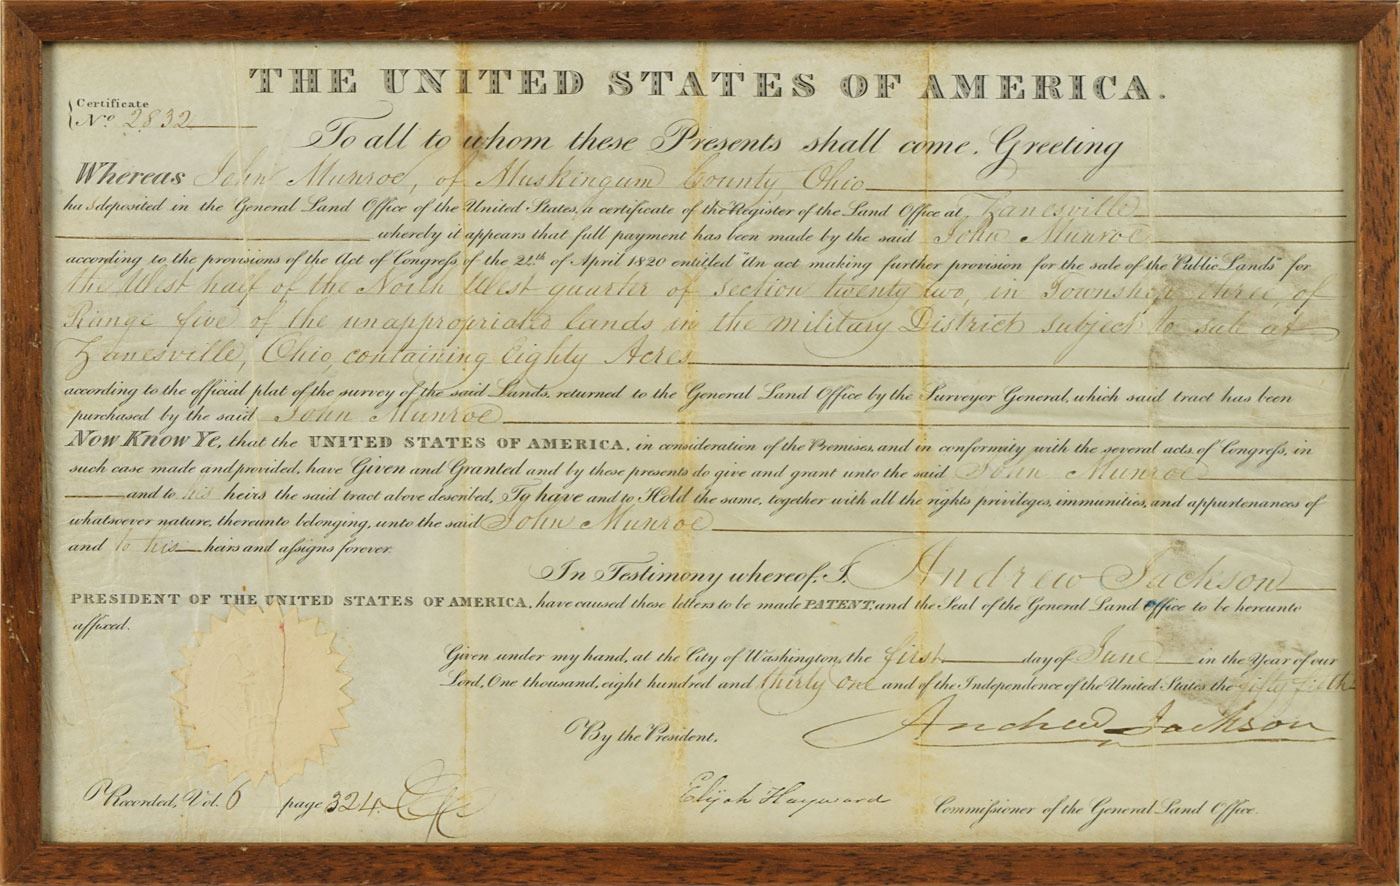 THE UNITED STATES OF AMERICA.
Certificate
No. 2832
To all to whom these Presents shall come, Greeting
Whereas John Munroe, of Muskingum County, Ohio
has deposited in the General Land Office of the United States, a certificate of the Register of the Land Office at Zanesville
whereby it appears that full payment has been made by the said John Munroe
according to the provisions of the Act of Congress of the 24th of April 1820 entitled "An act making further provision for the sale of the Public Lands" for
the West half of the North West quarter of Section twenty two, in Township three, of
Range five, of the unappropriated lands in the military District subject to sale at
Zanesville, Ohio, containing Eighty Acres
according to the official plat of the survey of the said Lands, returned to the General Land Office by the Surveyor General, which said tract has been
purchased by the said John Munroe
Now Know Ye, that the UNITED STATES OF AMERICA, in consideration of the Premises, and in conformity with the several acts of Congress, in
such case made and provided, have Given and Granted and by these presents do give and grant unto the said John Munroe
and to his heirs the said tract above described, To have and to Hold the same, together with all the rights privileges, immunities, and appurtenances of
whatsoever nature, thereunto belonging, unto the said John Munroe
and to his heirs and assigns forever.
In Testimony whereof, I, Andrew Jackson
PRESIDENT OF THE UNITED STATES OF AMERICA, have caused these letters to be made PATENT, and the Seal of the General Land Office to be hereunto
affixed.
Given under my hand, at the City of Washington, the first day of June in the Year of our
Lord, One thousand, eight hundred and thirty one and of the Independence of the United States the fifty fifth
Andrew Jackson
By the President.
Recorded, Vol. 6 page 324.
Elijah Hayward Commissioner of the General Land Office.